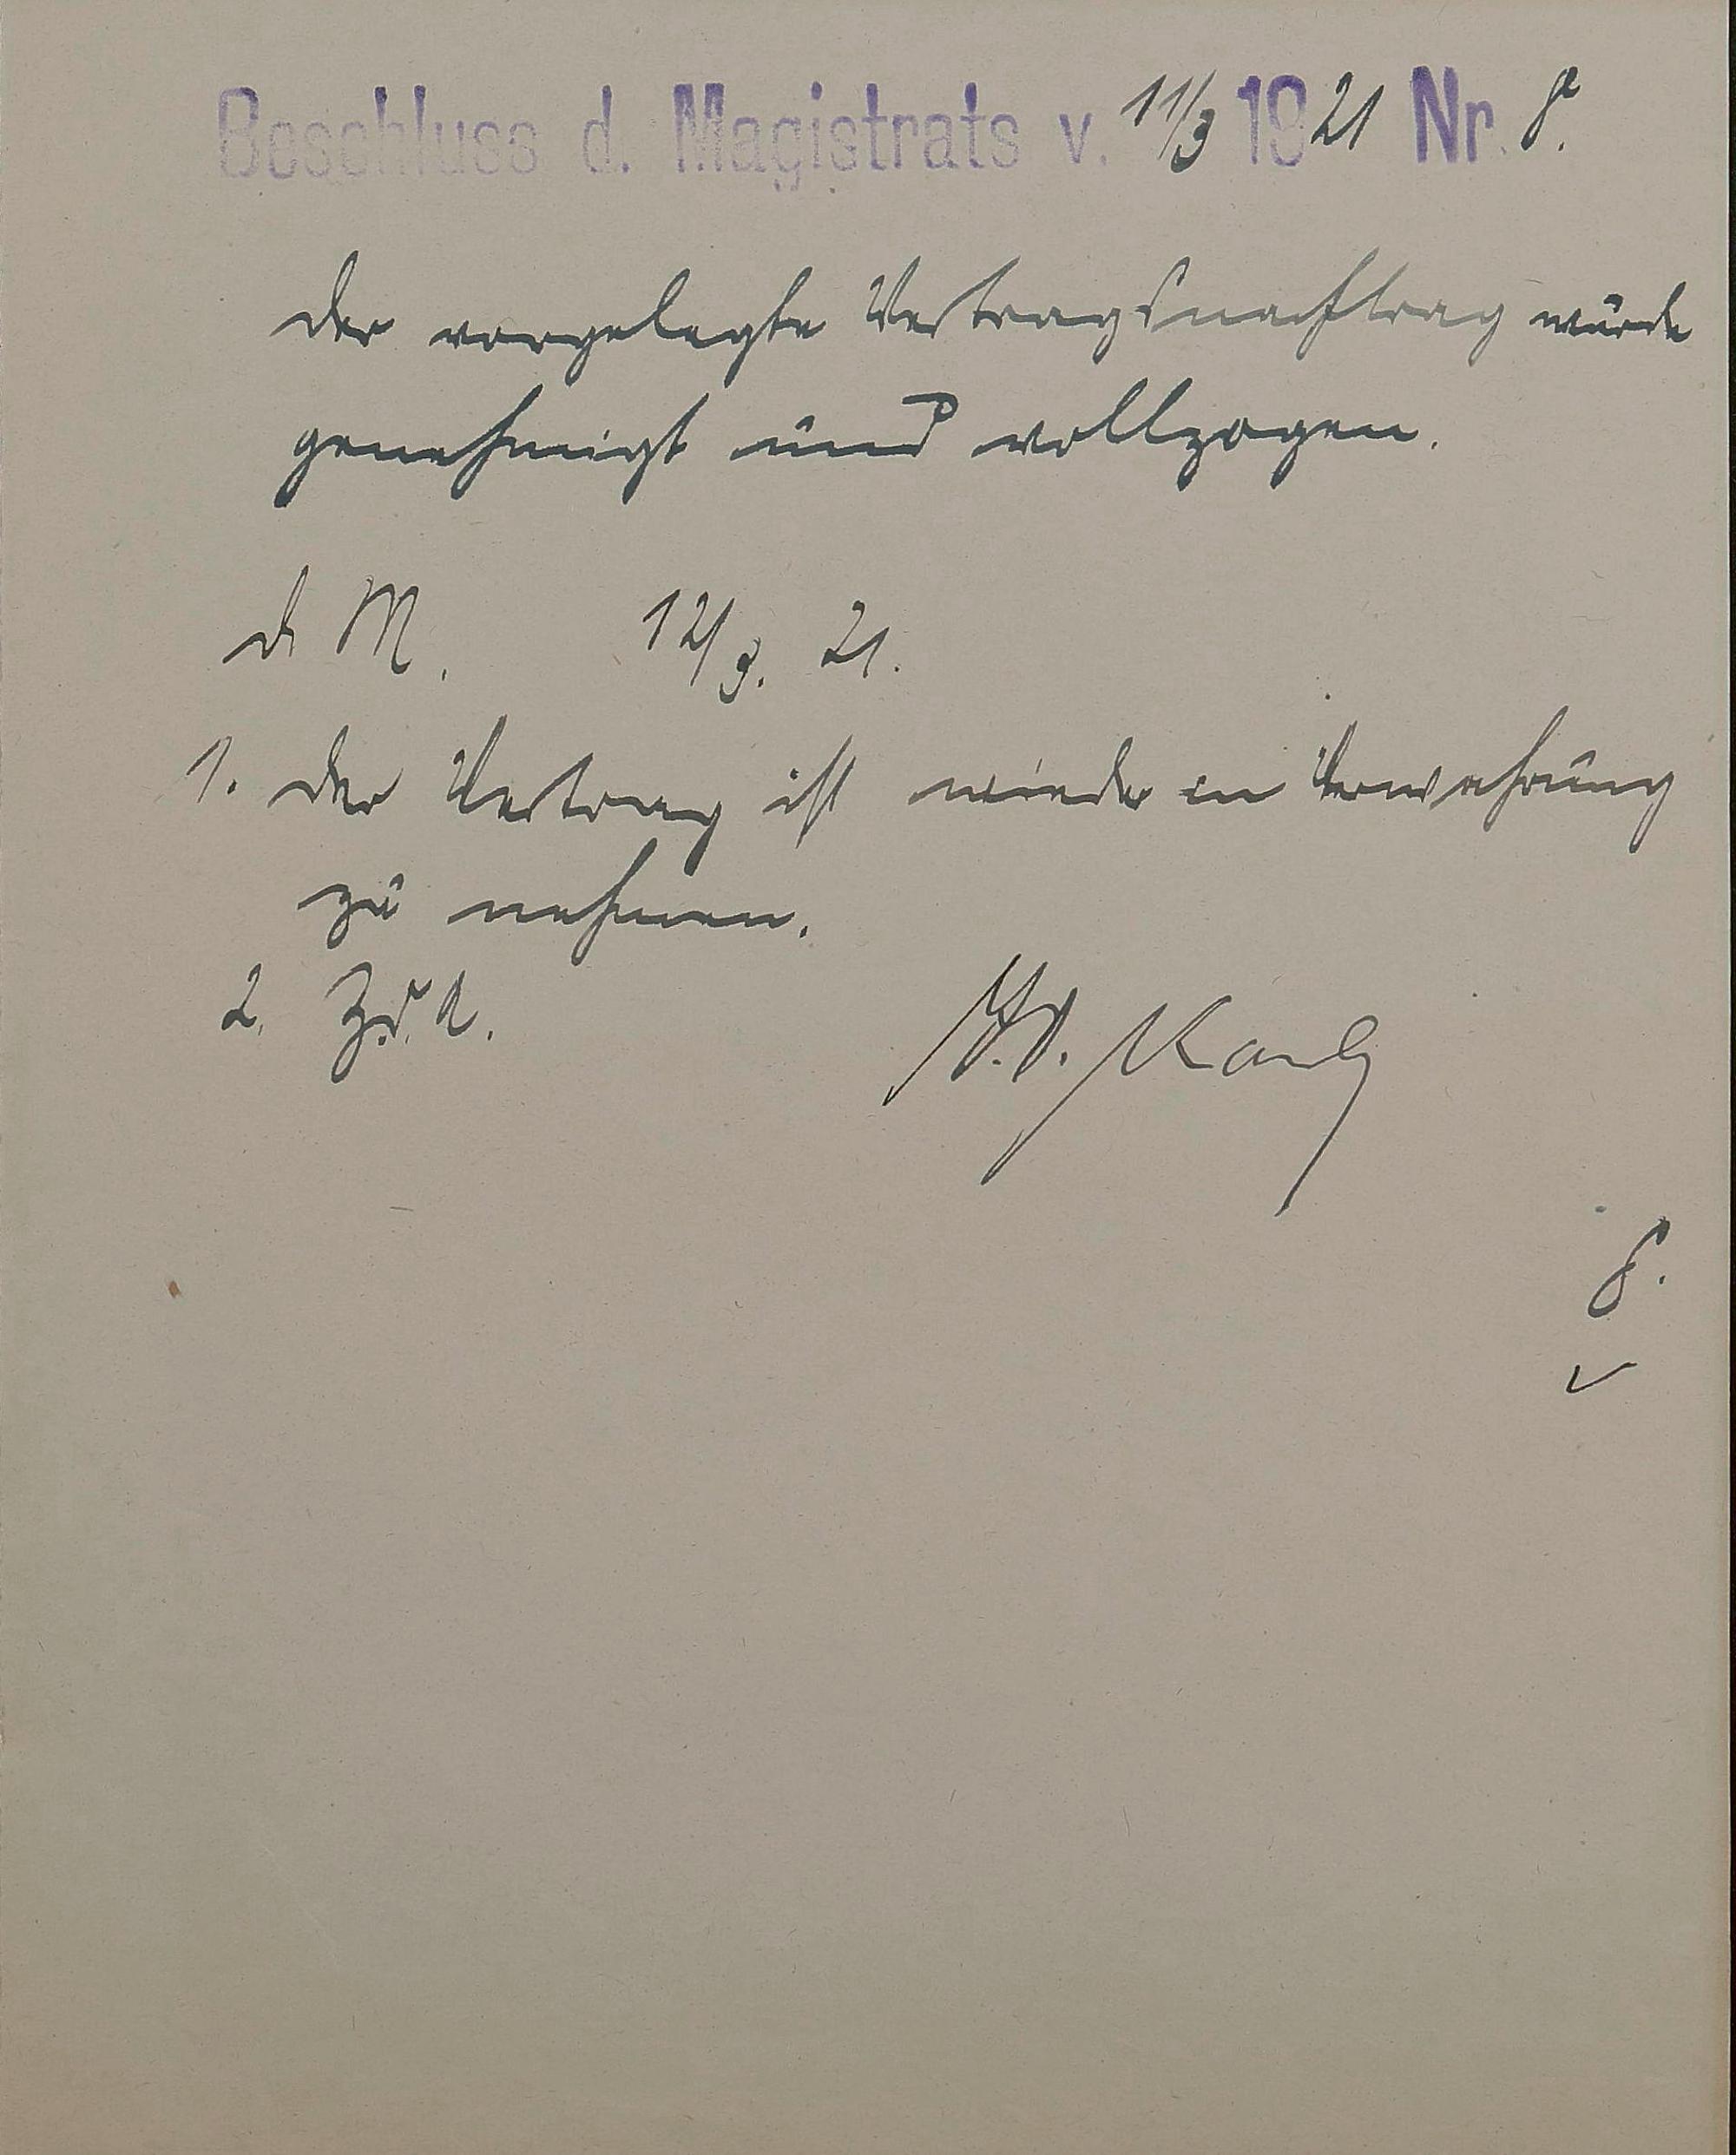 Beschluss d. Magistrats v. 11/3 1921 Nr. 8.
Der vorgelegte Vertragsnachtrag wurde
genehmigt und vollzogen.
D. M. 12/3. 21.
1. Der Vertrag ist wieder in Verwahrung
zu nehmen.
2. Z. d. A.